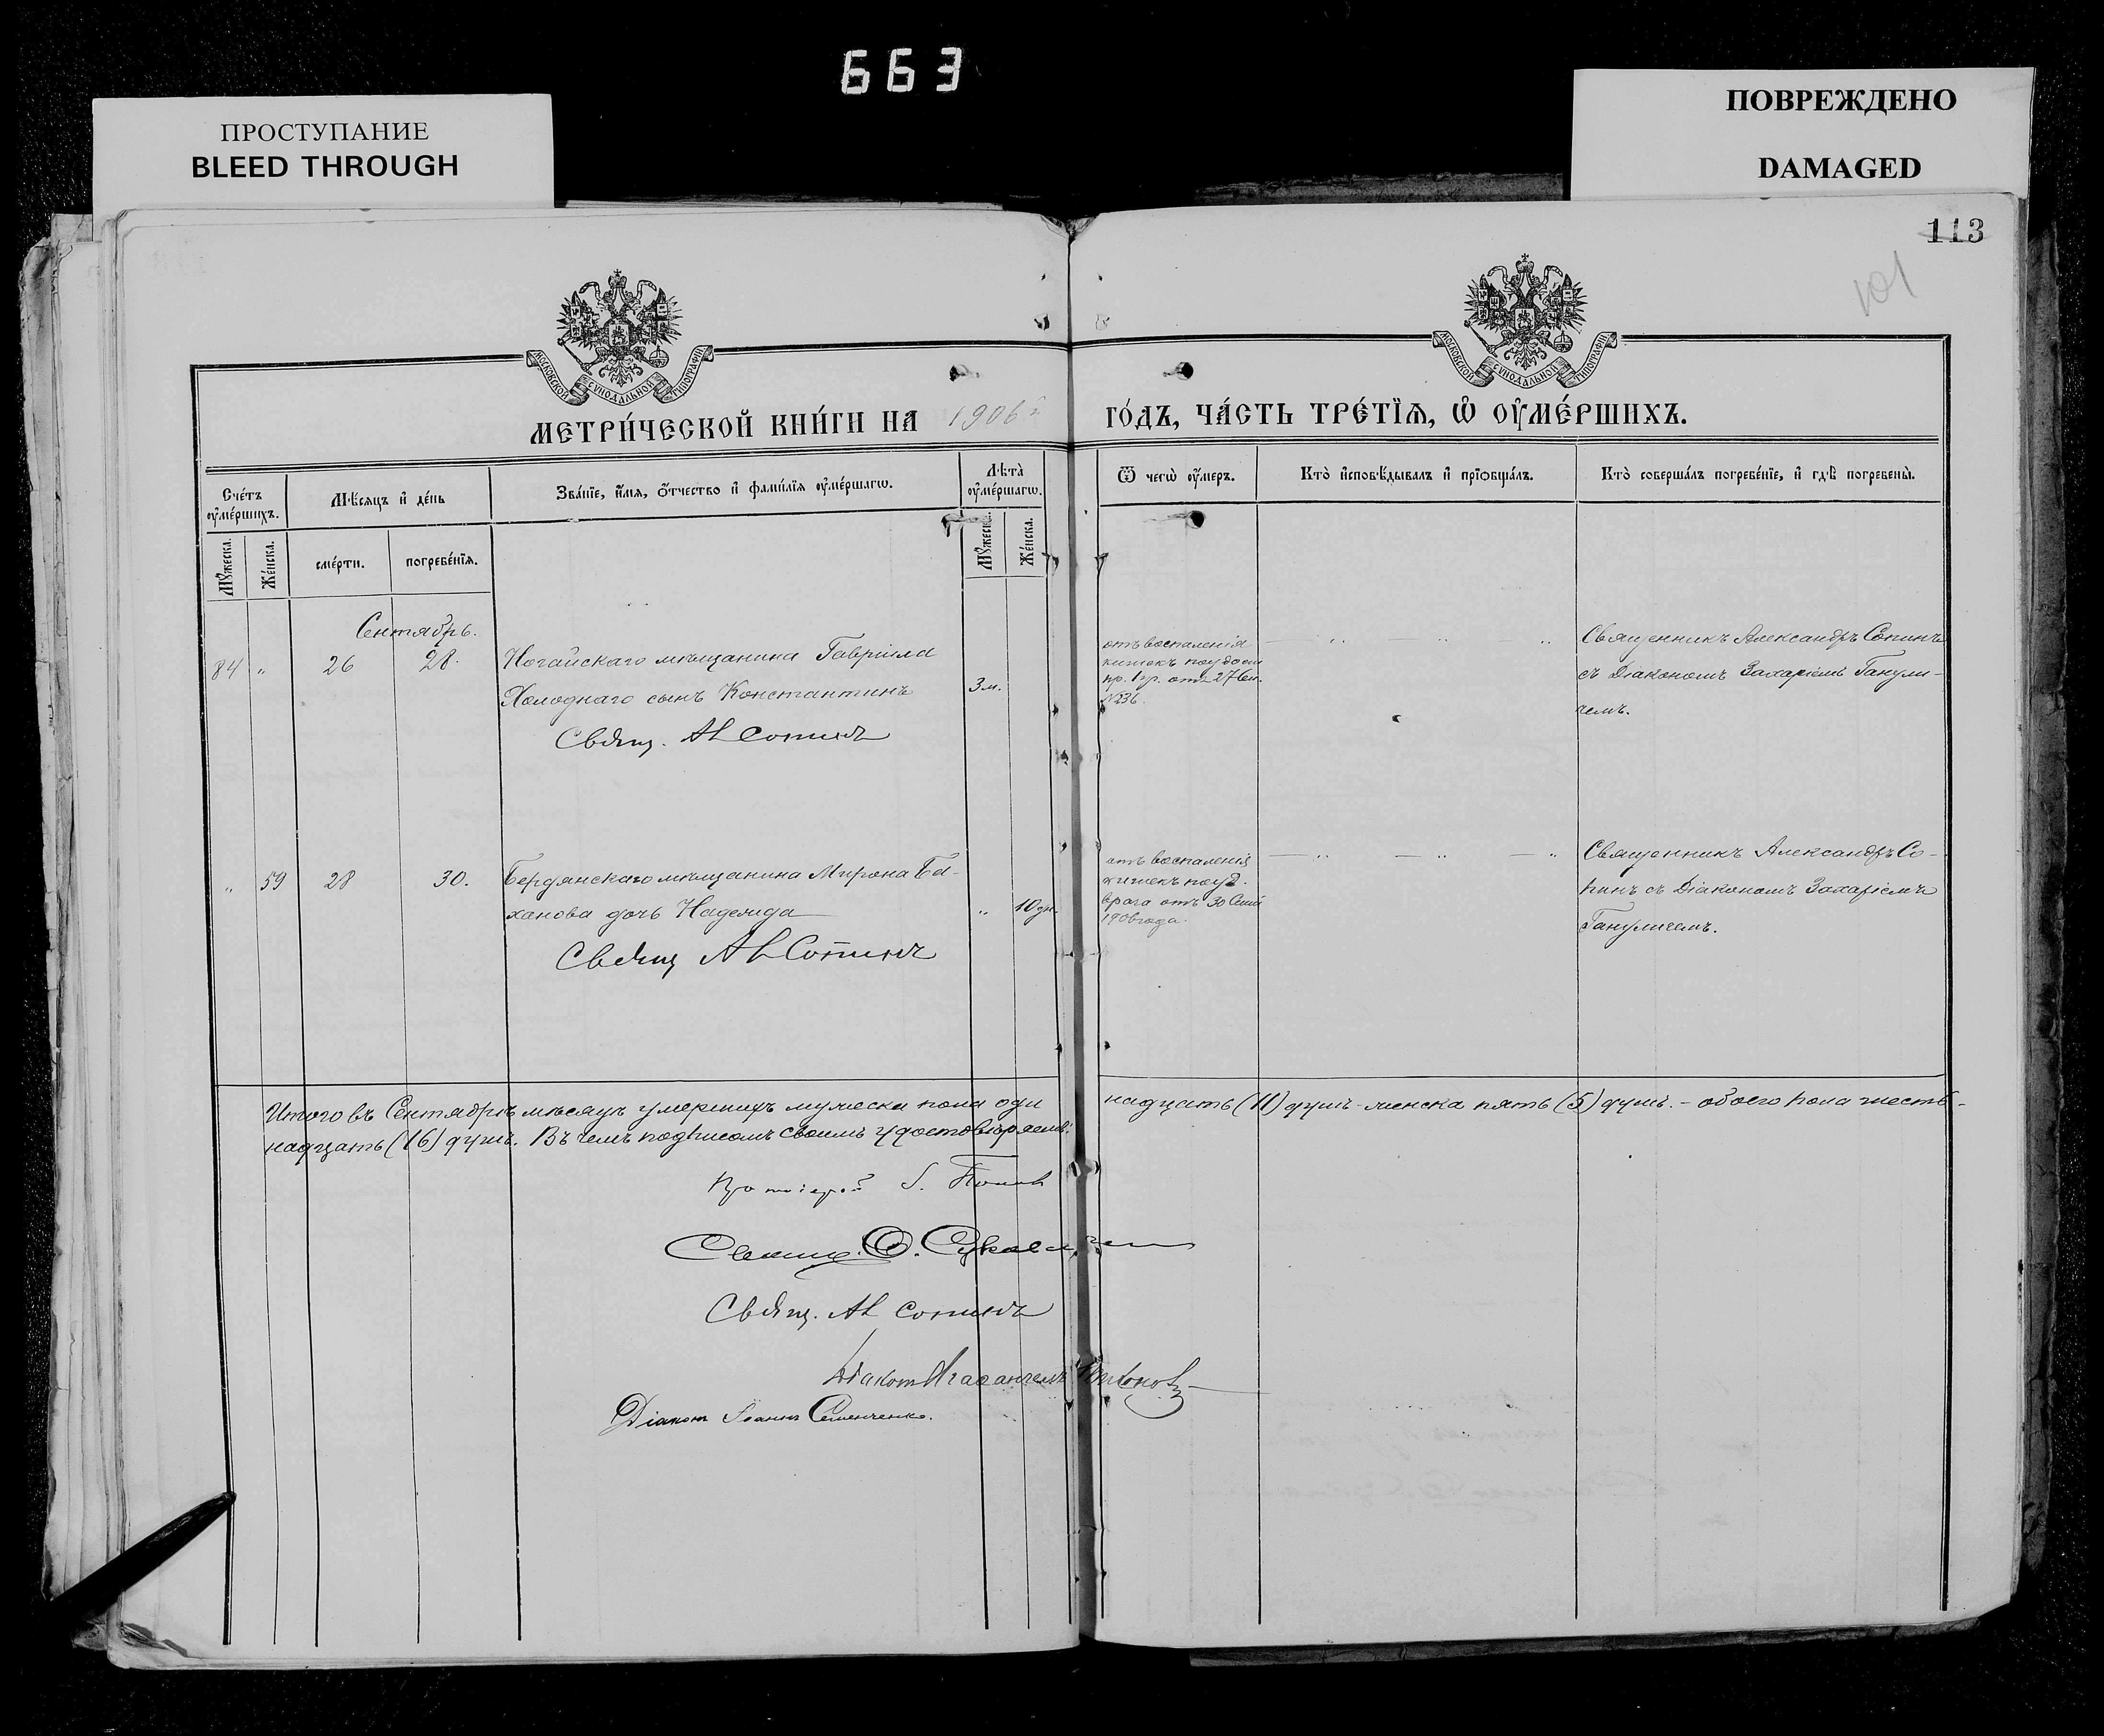 663
ПРОСТУПАНИЕ
BLEED THROUGH
ПОВРЕЖДЕНО
DAMAGED
113
101
МОСКОВСКОЙ СѴНОДАЛЬНОЙ ТИПОГРАФІИ
МОСКОВСКОЙ СѴНОДАЛЬНОЙ ТИПОГРАФІИ
МЕТРИ́ЧЕСКОЙ КНИ́ГИ НА 1906 г
ГО́ДЪ, ЧА́СТЬ ТРЕ́ТЇѦ, Ѡ҆ ОУ҆МЕ́РШИХЪ.
Сче́тъ оу҆ме́ршихъ.
Мѣ́сяцъ и҆ де́нь
Зва́нїе, и҆́мя, ѻ҆́тчество и҆ фами́лїя оу҆ме́ршагѡ.
Лѣта̀ оу҆ме́ршагѡ.
Ѿ чегѡ̀ оу҆́меръ.
Кто̀ и҆сповѣ́дывалъ и҆ прїѡбща́лъ.
Кто̀ соверша́лъ погребе́нїе, и҆ гдѣ̀ погребены̀.
Мꙋ́жеска.
Же́нска.
сме́рти.
погребе́нїя.
Мꙋ́жеска.
Же́нска.
Сентябрь.
84 „ 26 28. Ногайскаго мѣщанина Гавріила
Холоднаго сынъ Константинъ 3 м.
Свящ. Ал Сопинъ
отъ воспаленія
кишекъ по удост
пр. вр. отъ 27 Сен.
№236
Священникъ Александръ Сопинъ
съ Діакономъ Захаріемъ Ганули-
чемъ.
„ 59 28 30. Бердянскаго мѣщанина Мирона Ба-
ханова дочь Надежда „ 10 дн.
Свящ Ал Сопинъ
отъ воспаленія
кишекъ по уд.
врача отъ 30 Сент
1906 года.
Священникъ Александръ Со-
пинъ съ Діакономъ Захаріемъ
Гануличемъ.
Итого въ Сентябрѣ мѣсяцѣ умершихъ мужеска пола оди
надцать (11) душъ - женска пять (5) душъ. - обоего пола шест-
надцать (16) душъ. Въ чемъ подписомъ своимъ удостовѣряемъ:
Протоіерей Попов
Свящ.
Свящ. Ал Сопинъ
Діаконъ
Діаконъ Іоаннъ Семенченко.